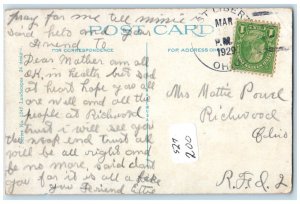 pray for me all mimie
said hello
POST CARD
FOR CORRESPONDENCE
WEST LIBERTY
MAR
P.M.
1929
OHIO
Dear Mother am all
O.K. in health but sad
at heart hope you all
are well and all the
people at Richwood
trust i will see you
the week end trust all
will be all right and
be no more, said don't
you for it is all a fake
your Friend
Mrs Mattie Powel
Richwood
Ohio
R.F.D 2
527
200